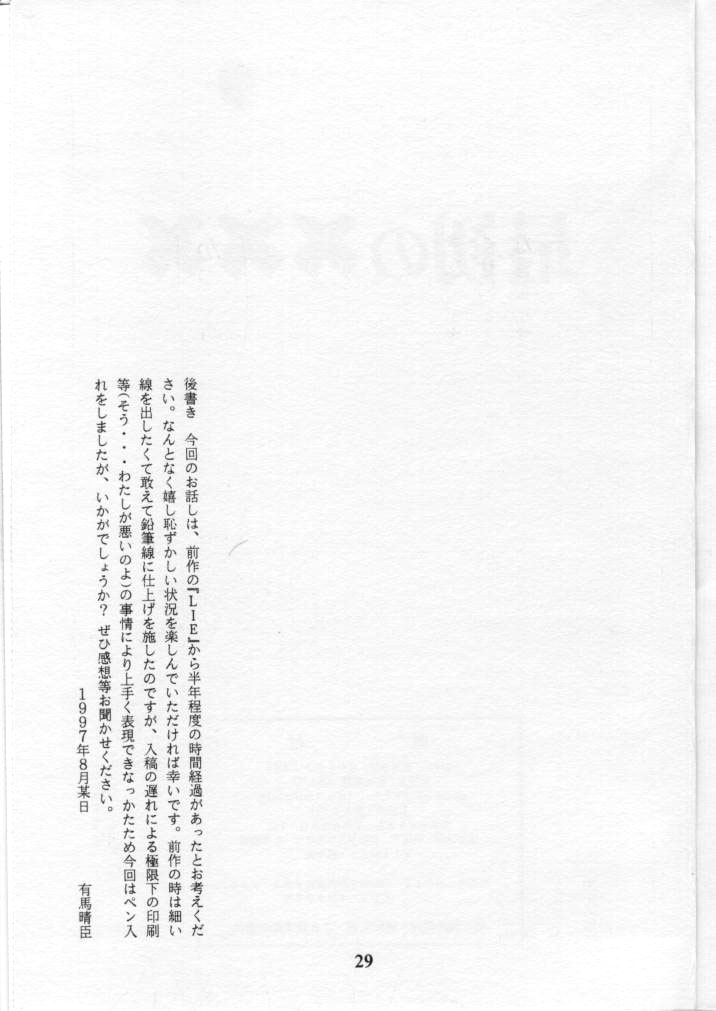 後書き　今回のお話しは、前作の『LIE』から半年程度の時間経過があったとお考えくだ
さい。なんとなく嬉し恥ずかしい状況を楽しんでいただければ幸いです。前作の時は細い
線を出したくて敢えて鉛筆線に仕上げを施したのですが、入稿の遅れによる極限下の印刷
等(そう・・・わたしが悪いのよ)の事情により上手く表現できなっかたため今回はペン入
れをしましたが、いかがでしょうか？　ぜひ感想等お聞かせください。
1997年8月某日　　有馬晴臣
29